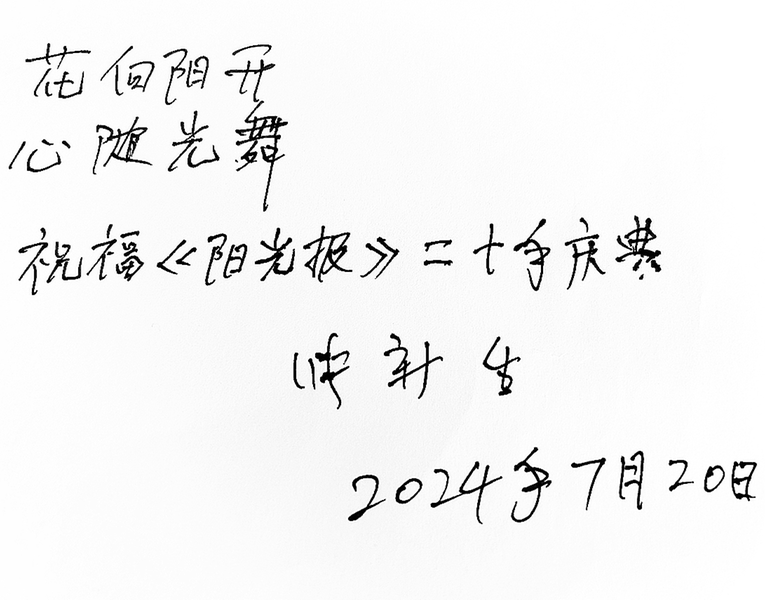 花向阳开
心随光舞
祝福《阳光报》二十年庆典
师新生
2024年7月20日